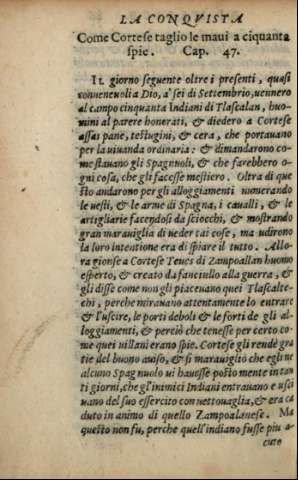 LA CONQVISTA
Come Cortese taglio le mani a ciquanta
spie. Cap. 47.
IL giorno seguente oltre i presenti, quasi
conueneuoli a Dio, a' sei di Settembrio, uennero
al campo cinquanta Indiani di Tlascalan, huo-
mini al parere honorati, & diedero a Cortese
assai pane, testugini, & cera, che portauano
per la uiuanda ordinaria: & dimandarono co-
me stauano gli Spagnuoli, & che farebbero o-
gni cosa, che gli facesse mestiero. Oltra di que-
sto andarono per gli alloggiamenti numerando
le uesti, & le arme di Spagna, i caualli, & le
artigliarie facendosi da sciocchi, & mostrando
gran marauiglia di ueder tai cose, ma udirono
la loro intentione era di spiare il tutto. Allo-
ra gionse a Cortese Teucs di Zampoallan huomo
esperto, & creato da fanciullo alla guerra, &
gli disse come non gli piaceuano quei Tlascalte-
chi, perche mirauano attentamente lo entrare
& l'uscire, le porti deboli & le forti de gli al-
loggiamenti, & perciò che tenesse per certo co-
me quei uillani erano spie. Cortese gli rendè gra
tie del buono auiso, & si marauigliò che egli ne
alcuno Spagnuolo ui hauesse posto mente in tan
ti giorni, che gl'inimici Indiani entrauano e usci
uano del suo essercito con uettouaglia, & era ca
duto in animo di quello Zampoalanese. Ma
questo non fu, perche quell'indiano fusse piu a-
cute